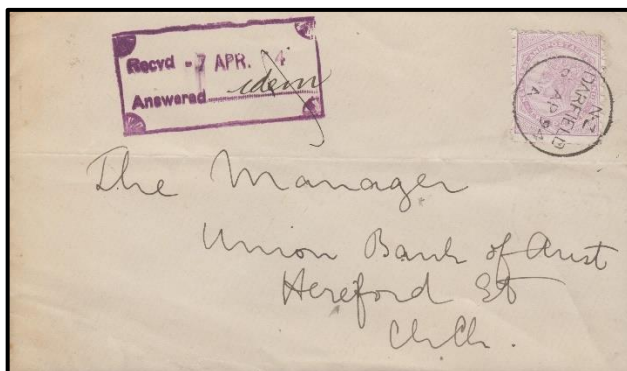 Recvd - 7 APR. 4
Answered idem
N.Z
DARFIELD
AP 94
A
The Manager
Union Bank of Aust
Hereford St
Ch.Ch.